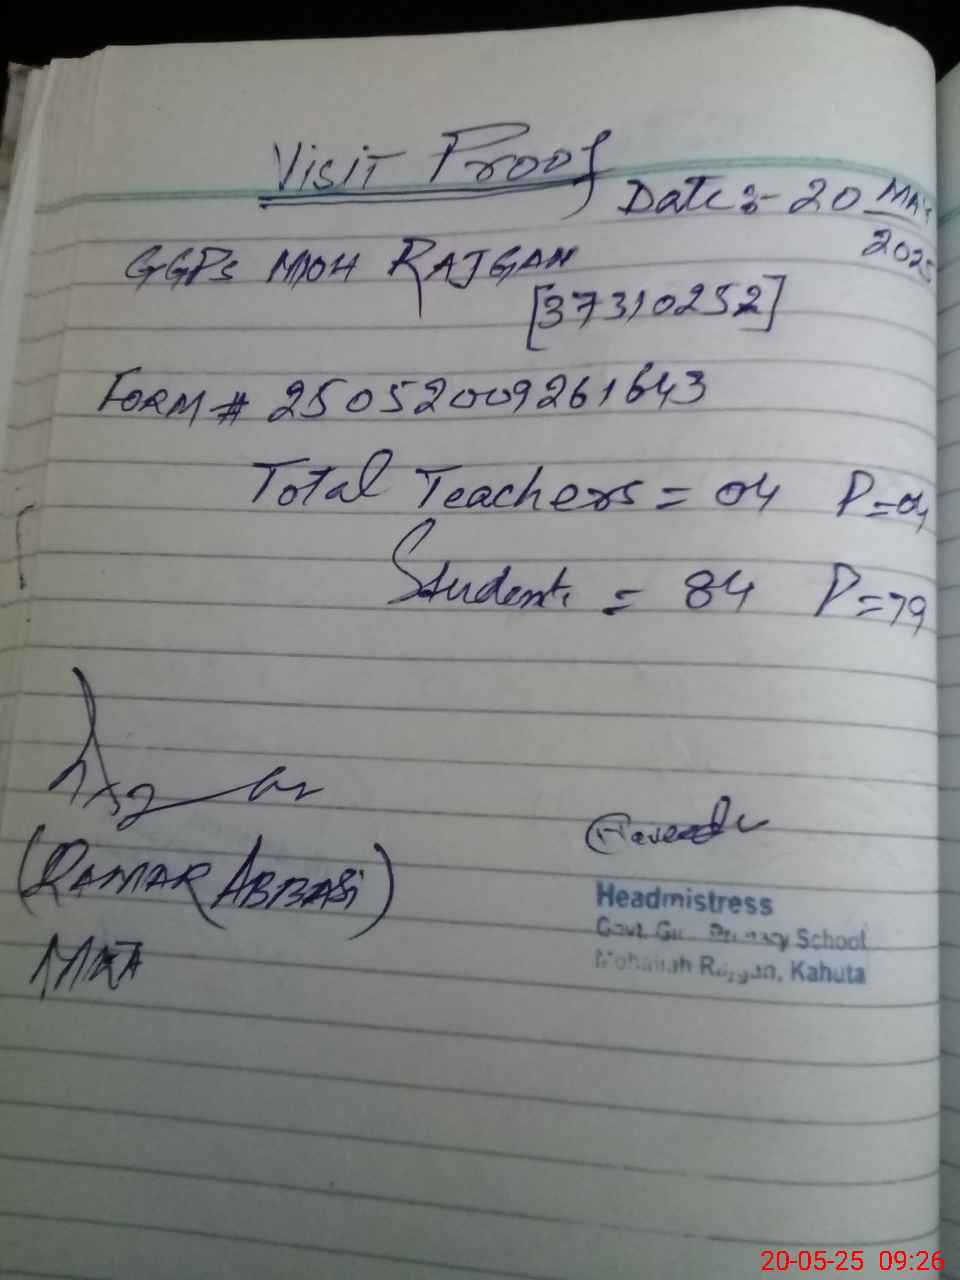 Visit Proof
Date :- 20 MAY
2025
GGPS MOH RAJGAN
[37310252]
FORM # 25052009261643
Total Teachers = 04 P=04
Students = 84 P=79
(QAMAR ABBASI)
MEA
Headmistress
Govt. Primary School
Mohallah Rajgan, Kahuta
20-05-25 09:26